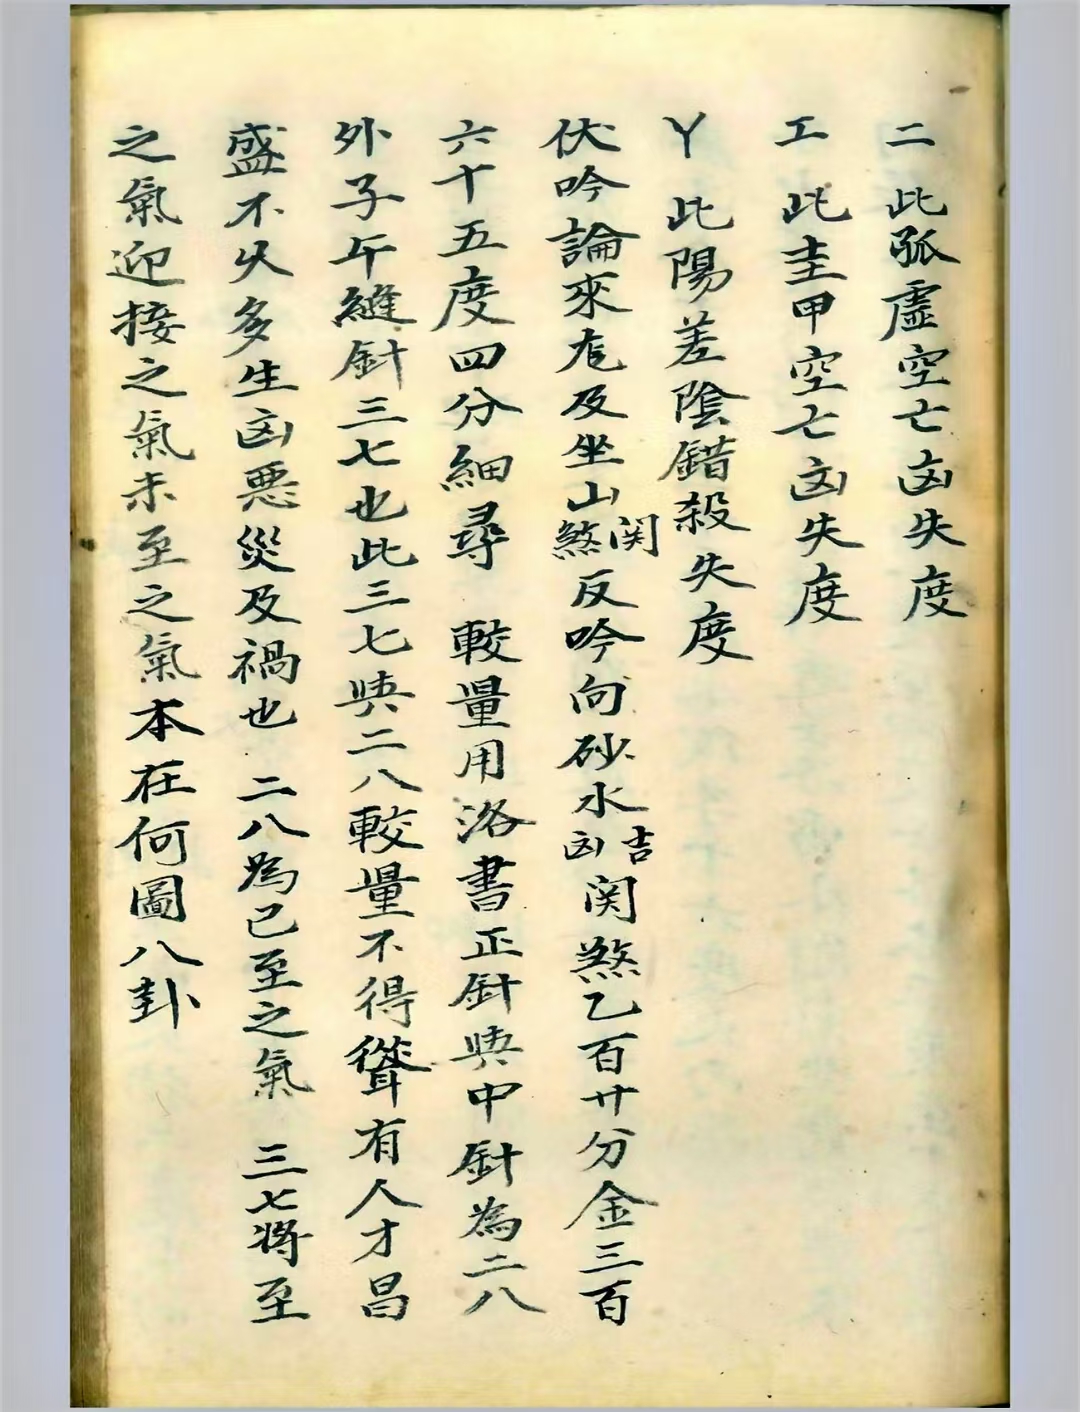 二 此孤虛空亡凶失度
工 此圭甲空亡凶失度
丫 此陽差陰錯殺失度
伏吟論來龙及坐山関煞反吟向砂水吉凶関煞乙百廿分金三百
六十五度四分細尋 較量用洛書正針與中針為二八
外子午縫針三七也此三七與二八較量不得聳有人才昌
盛不久多生凶悪災及禍也 二八為已至之氣 三七將至
之氣迎接之氣未至之氣本在何圖八卦